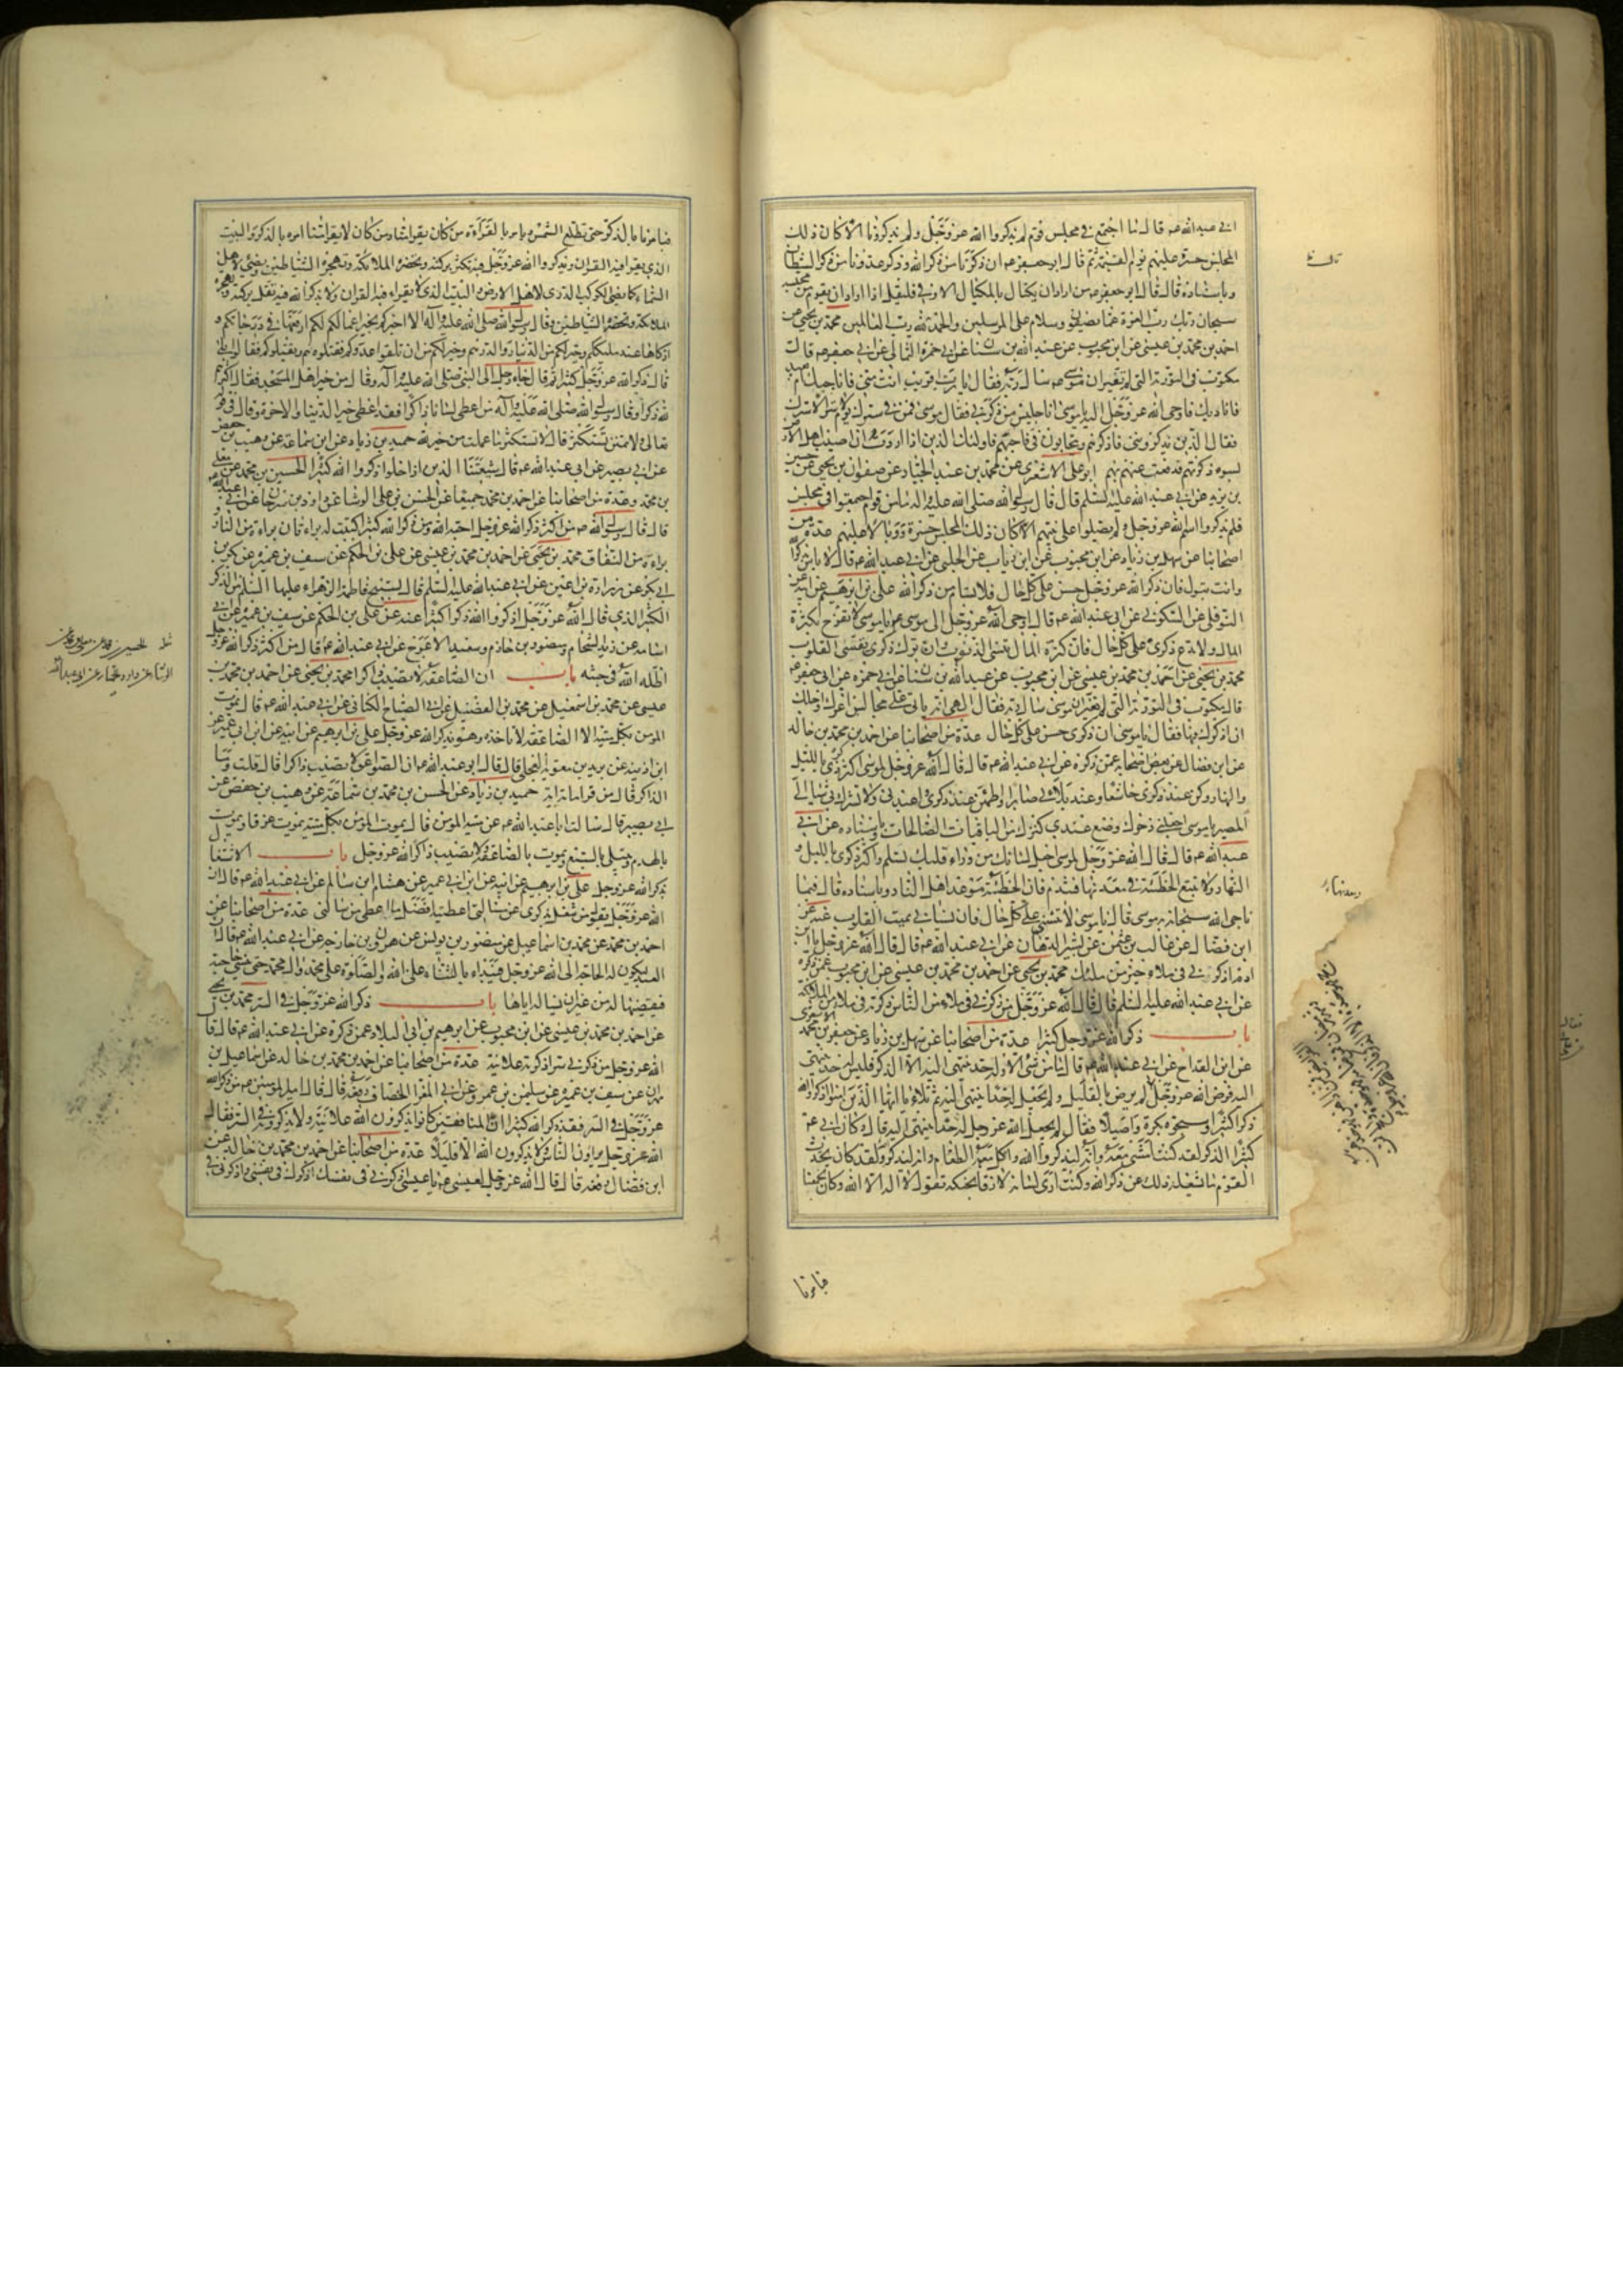 ابي عبد الله عم قال ما اجتمع في مجلس قوم لم يذكروا الله عز وجل ولم يذكرونا الا كان ذلك
المجلس حسرة عليهم يوم القيمة ثم قال ابو جعفر عم ان ذكرنا من ذكر الله وذكر عدونا من ذكر الشيطان
وباسناده قال قال ابو جعفر عم من اراد ان يكتال بالمكيال الاوفى فليقل اذا اراد ان يقوم من مجلسه
سبحان ربك رب العزة عما يصفون وسلام على المرسلين والحمد لله رب العالمين محمد بن يحيى عن
احمد بن محمد بن عيسى عن ابن محبوب عن عبد الله بن سنان عن ابي حمزة الثمالي عن ابي جعفر عم قال
مكتوب في التورية التي لم تغير ان موسى عم سال ربه فقال يا رب اقريب انت مني فاناجيك ام بعيد
فاناديك فاوحى الله عز وجل اليه يا موسى انا جليس من ذكرني فقال موسى فمن في سترك يوم لا ستر الا سترك
فقال الذين يذكرونني فاذكرهم ويتحابون في فاحبهم فاولئك الذين اذا اردت ان اصيب اهل الارض
بسوء ذكرتهم فدفعت عنهم بهم ابو علي الاشعري عن محمد بن عبد الجبار عن صفوان بن يحيى عن حسين
بن يزيد عن ابي عبد الله عليه السلم قال قال رسول الله صلى الله عليه واله ما من قوم اجتمعوا في مجلس
فلم يذكروا اسم الله عز وجل ولم يصلوا على نبيهم الا كان ذلك المجلس حسرة ووبالا عليهم عدة من
اصحابنا عن سهل بن زياد عن ابن محبوب عن ابن رياب عن الحلبي عن ابي عبد الله عم قال لا باس بذكر الله
وانت تبول فان ذكر الله عز وجل حسن على كل حال فلا تسام من ذكر الله علي بن ابرهيم عن ابيه عن
النوفلي عن السكوني عن ابي عبد الله عم قال اوحى الله عز وجل الى موسى عم يا موسى لا تفرح بكثرة
المال ولا تدع ذكري على كل حال فان كثرة المال تنسي الذنوب وان ترك ذكري يقسي القلوب
محمد بن يحيى عن احمد بن محمد بن عيسى عن ابن محبوب عن عبد الله بن سنان عن ابي حمزة عن ابي جعفر عم
قال مكتوب في التورية التي لم تغير ان موسى سال ربه فقال الهي انه ياتي علي مجالس اعزك واجلك
ان اذكرك فيها فقال يا موسى ان ذكري حسن على كل حال عدة من اصحابنا عن احمد بن محمد بن خالد
عن ابن فضال عن بعض اصحابه عمن ذكره عن ابي عبد الله عم قال قال الله عز وجل لموسى اكثر ذكري بالليل
والنهار وكن عند ذكري خاشعا وعند بلائي صابرا واطمئن عند ذكري واعبدني ولا تشرك بي شيا الي
المصير يا موسى اجعلني ذخرك وضع عندي كنزك من الباقيات الصالحات وباسناده عن ابي
عبد الله عم قال قال الله عز وجل لموسى اجعل لسانك من وراء قلبك تسلم واكثر ذكري بالليل و
النهار ولا تتبع الخطيئة في معدنها فتندم فان الخطيئة موعد اهل النار وباسناده قال فيما
ناجى الله سبحانه به موسى قال يا موسى لا تنسني على كل حال فان نسياني يميت القلوب عنه عن
ابن فضال عن غالب بن عثمن عن بشير الدهقان عن ابي عبد الله عم قال قال الله عز وجل يا ابن
ادم اذكرني في ملاء خير من ملئك محمد بن يحيى عن احمد بن محمد بن عيسى عن ابن محبوب عمن ذكره
عن ابي عبد الله عليه السلم قال قال الله عز وجل من ذكرني في ملاء من الناس ذكرته في ملاء من الملائكة
باب ذكر الله عز وجل كثيرا عدة من اصحابنا عن سهل بن زياد عن جعفر بن محمد الاشعري
عن ابن القداح عن ابي عبد الله عم قال ما من شئ الا وله حد ينتهي اليه الا الذكر فليس له حد ينتهي
اليه فرض الله عز وجل
لم يرض منه بالقليل ولم يجعل له حدا ينتهي اليه ثم تلا يا ايها الذين امنوا اذكروا الله
ذكرا كثيرا وسبحوه بكرة واصيلا فقال لم يجعل الله عز وجل له حدا ينتهي اليه قال وكان ابي عم
كثير الذكر لقد كنت امشي معه وانه ليذكر الله واكل معه الطعام وانه ليذكر الله ولقد كان يحدث
القوم ما يشغله ذلك عن ذكر الله وكنت ارى لسانه لازقا بحنكه تقول لا اله الا الله وكان يجمعنا
فيامرنا
فيامرنا بالذكر حتى تطلع الشمس ويامر بالقراءة من كان يقرا منا ومن كان لا يقرا منا امره بالذكر والبيت
الذي يقرا فيه القران ويذكر الله عز وجل فيه تكثر بركته وتحضره الملائكة وتهجره الشياطين ويضئ لاهل
السماء كما يضئ الكوكب الدري لاهل الارض والبيت الذي لا يقراء فيه القران ولا يذكر الله فيه تقل بركته وتهجره
الملائكة وتحضره الشياطين وقال رسول الله صلى الله عليه واله الا اخبركم بخير اعمالكم لكم ارفعها في درجاتكم و
ازكاها عند مليككم وخير لكم من الدينار والدرهم وخير لكم من ان تلقوا عدوكم فتقتلوهم ويقتلوكم فقالوا بلى
قال ذكر الله عز وجل كثيرا ثم قال جاء رجل الى النبي صلى الله عليه واله وقال من خير اهل المسجد فقال اكثرهم
لله ذكرا وقال رسول الله صلى الله عليه واله من اعطي لسانا ذاكرا فقد اعطي خير الدنيا والاخرة وقال في قوله
تعالى ولا تمنن تستكثر قال لا تستكثر ما عملت من خير لله حميد بن زياد عن ابن سماعة عن وهيب بن حفص
عن ابي بصير عن ابي عبد الله عم قال شيعتنا الذين اذا خلوا ذكروا الله كثيرا الحسين بن محمد عن معلى
بن محمد وعدة من اصحابنا عن احمد بن محمد جميعا عن الحسن بن علي الوشا عن داود بن سرحان عن ابي عبد الله
قال قال رسول الله ص من اكثر ذكر الله عز وجل احبه الله ومن ذكر الله كثيرا كتبت له براءتان براءة من النار و
براءة من النفاق محمد بن يحيى عن احمد بن محمد بن عيسى عن علي بن الحكم عن سيف بن عميرة عن بكر بن
ابي بكر عن زرارة بن اعين عن ابي عبد الله عليه السلم قال تسبيح فاطمة الزهراء عليها السلم من الذكر
الكثير الذي قال الله عز وجل اذكروا الله ذكرا كثيرا عنه عن علي بن الحكم عن سيف بن عميرة عن ابي
اسامة عن زيد الشحام ومنصور بن حازم وسعيد الاعرج عن ابي عبد الله عم قال من اكثر ذكر الله عز وجل
اظله الله في جنته باب ان الصاعقة لا تصيب ذاكرا محمد بن يحيى عن احمد بن محمد بن
عيسى عن محمد بن اسمعيل عن محمد بن الفضيل عن ابي الصباح الكناني عن ابي عبد الله عم قال يموت
المؤمن بكل ميتة الا الصاعقة لا تاخذه وهو يذكر الله عز وجل علي بن ابرهيم عن ابيه عن ابن ابي عمير عن
ابن اذينة عن بريد بن معوية العجلي قال قال ابو عبد الله عم ان الصواعق لا تصيب ذاكرا قال قلت وما
الذاكر قال من قرا ماية اية حميد بن زياد عن الحسن بن محمد بن سماعة عن وهيب بن حفص عن
ابي بصير قال سالت ابا عبد الله عم عن ميتة المؤمن قال يموت المؤمن بكل ميتة يموت غرقا ويموت
بالهدم ويبتلى بالسبع ويموت بالصاعقة ولا تصيب ذاكر الله عز وجل باب الاشتغال
بذكر الله عز وجل علي بن ابرهيم عن ابيه عن ابن ابي عمير عن هشام ابن سالم عن ابي عبد الله عم قال ان
الله عز وجل يقول من شغل بذكري عن مسالتي اعطيته افضل ما اعطي من سالني عدة من اصحابنا عن
احمد بن محمد عن محمد بن اسماعيل عن منصور بن يونس عن هرون بن خارجه عن ابي عبد الله عم قال ان
العبد ليكون له الحاجة الى الله عز وجل فيبداء بالثناء على الله والصلوة على محمد وال محمد حتى ينسى حاجته
فيقضيها له من غير ان يساله اياها باب ذكر الله عز وجل في السر محمد بن يحيى
عن احمد بن محمد بن عيسى عن ابن محبوب عن ابرهيم بن ابي البلاد عمن ذكره عن ابي عبد الله عم قال قال
الله عز وجل من ذكرني سرا ذكرته علانية عدة من اصحابنا عن احمد بن محمد بن خالد عن اسماعيل بن
مهران عن سيف بن عميرة عن سليمن بن عمرو عن ابي المغرا الخصاف رفعه قال قال امير المؤمنين عم من ذكر الله
عز وجل في السر فقد ذكر الله كثيرا ان المنافقين كانوا يذكرون الله علانية ولا يذكرونه في السر فقال
الله عز وجل يراؤن الناس ولا يذكرون الله الا قليلا عدة من اصحابنا عن احمد بن محمد بن خالد عن
ابن فضال رفعه قال قال الله عز وجل لعيسى عم يا عيسى اذكرني في نفسك اذكرك في نفسي واذكرني في